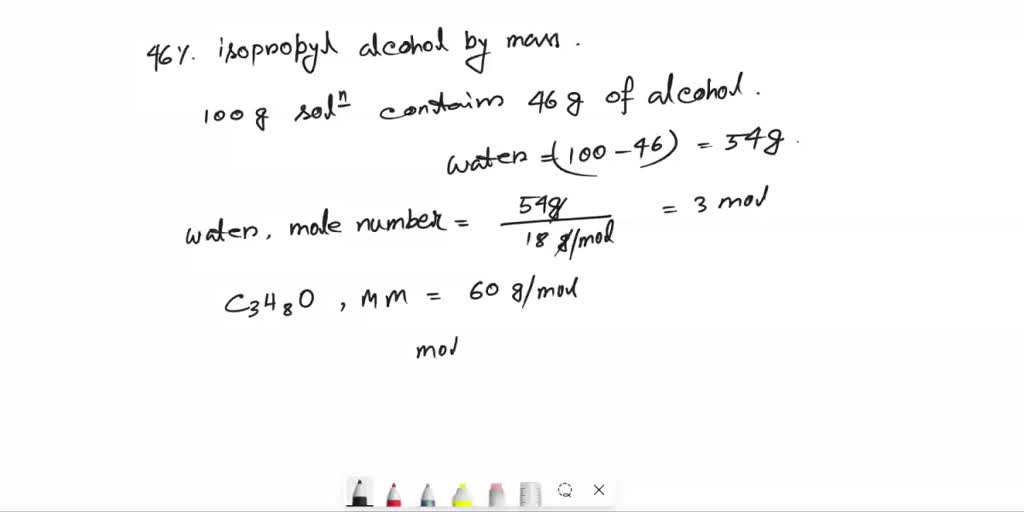 46%. isopropyl alcohol by mass.
100 g solⁿ contains 46 g of alcohol.
water = (100 - 46) = 54g.
water, mole number = 54g / 18 g/mol = 3 mol
C₃H₈O, MM = 60 g/mol
mol